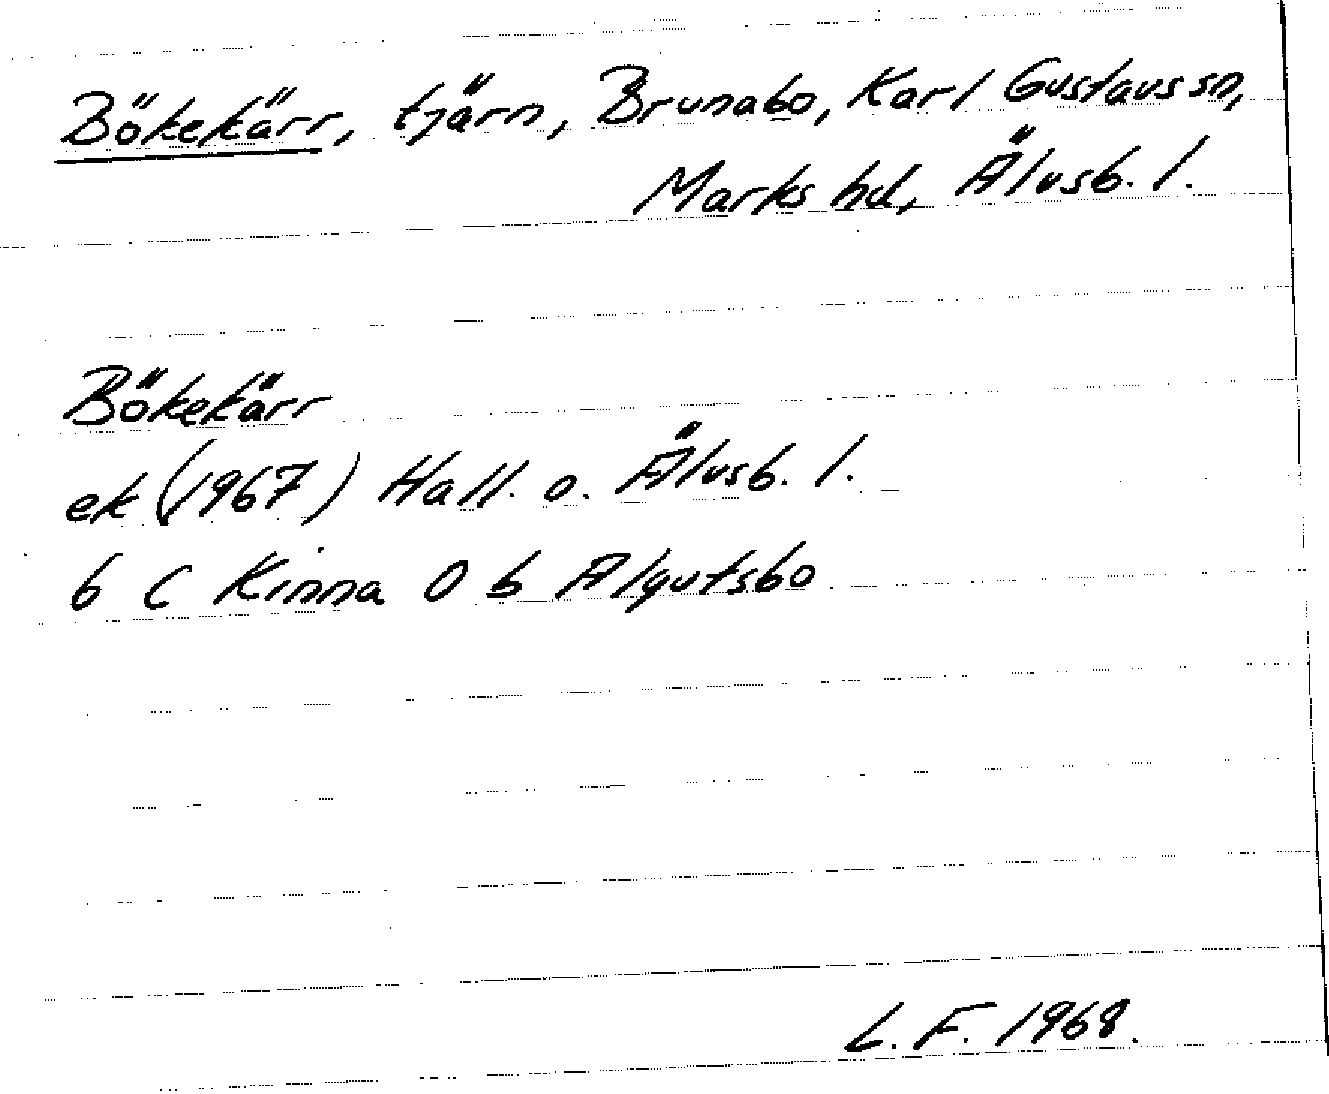 Bökekärr, tjärn, Brunabo, Karl Gustavs sn,
Marks hd, Älvsb. l.
Bökekärr
ek (1967) Hall. o. Älvsb. l.
6 C Kinna 0 b Algutsbo
L. F. 1968.